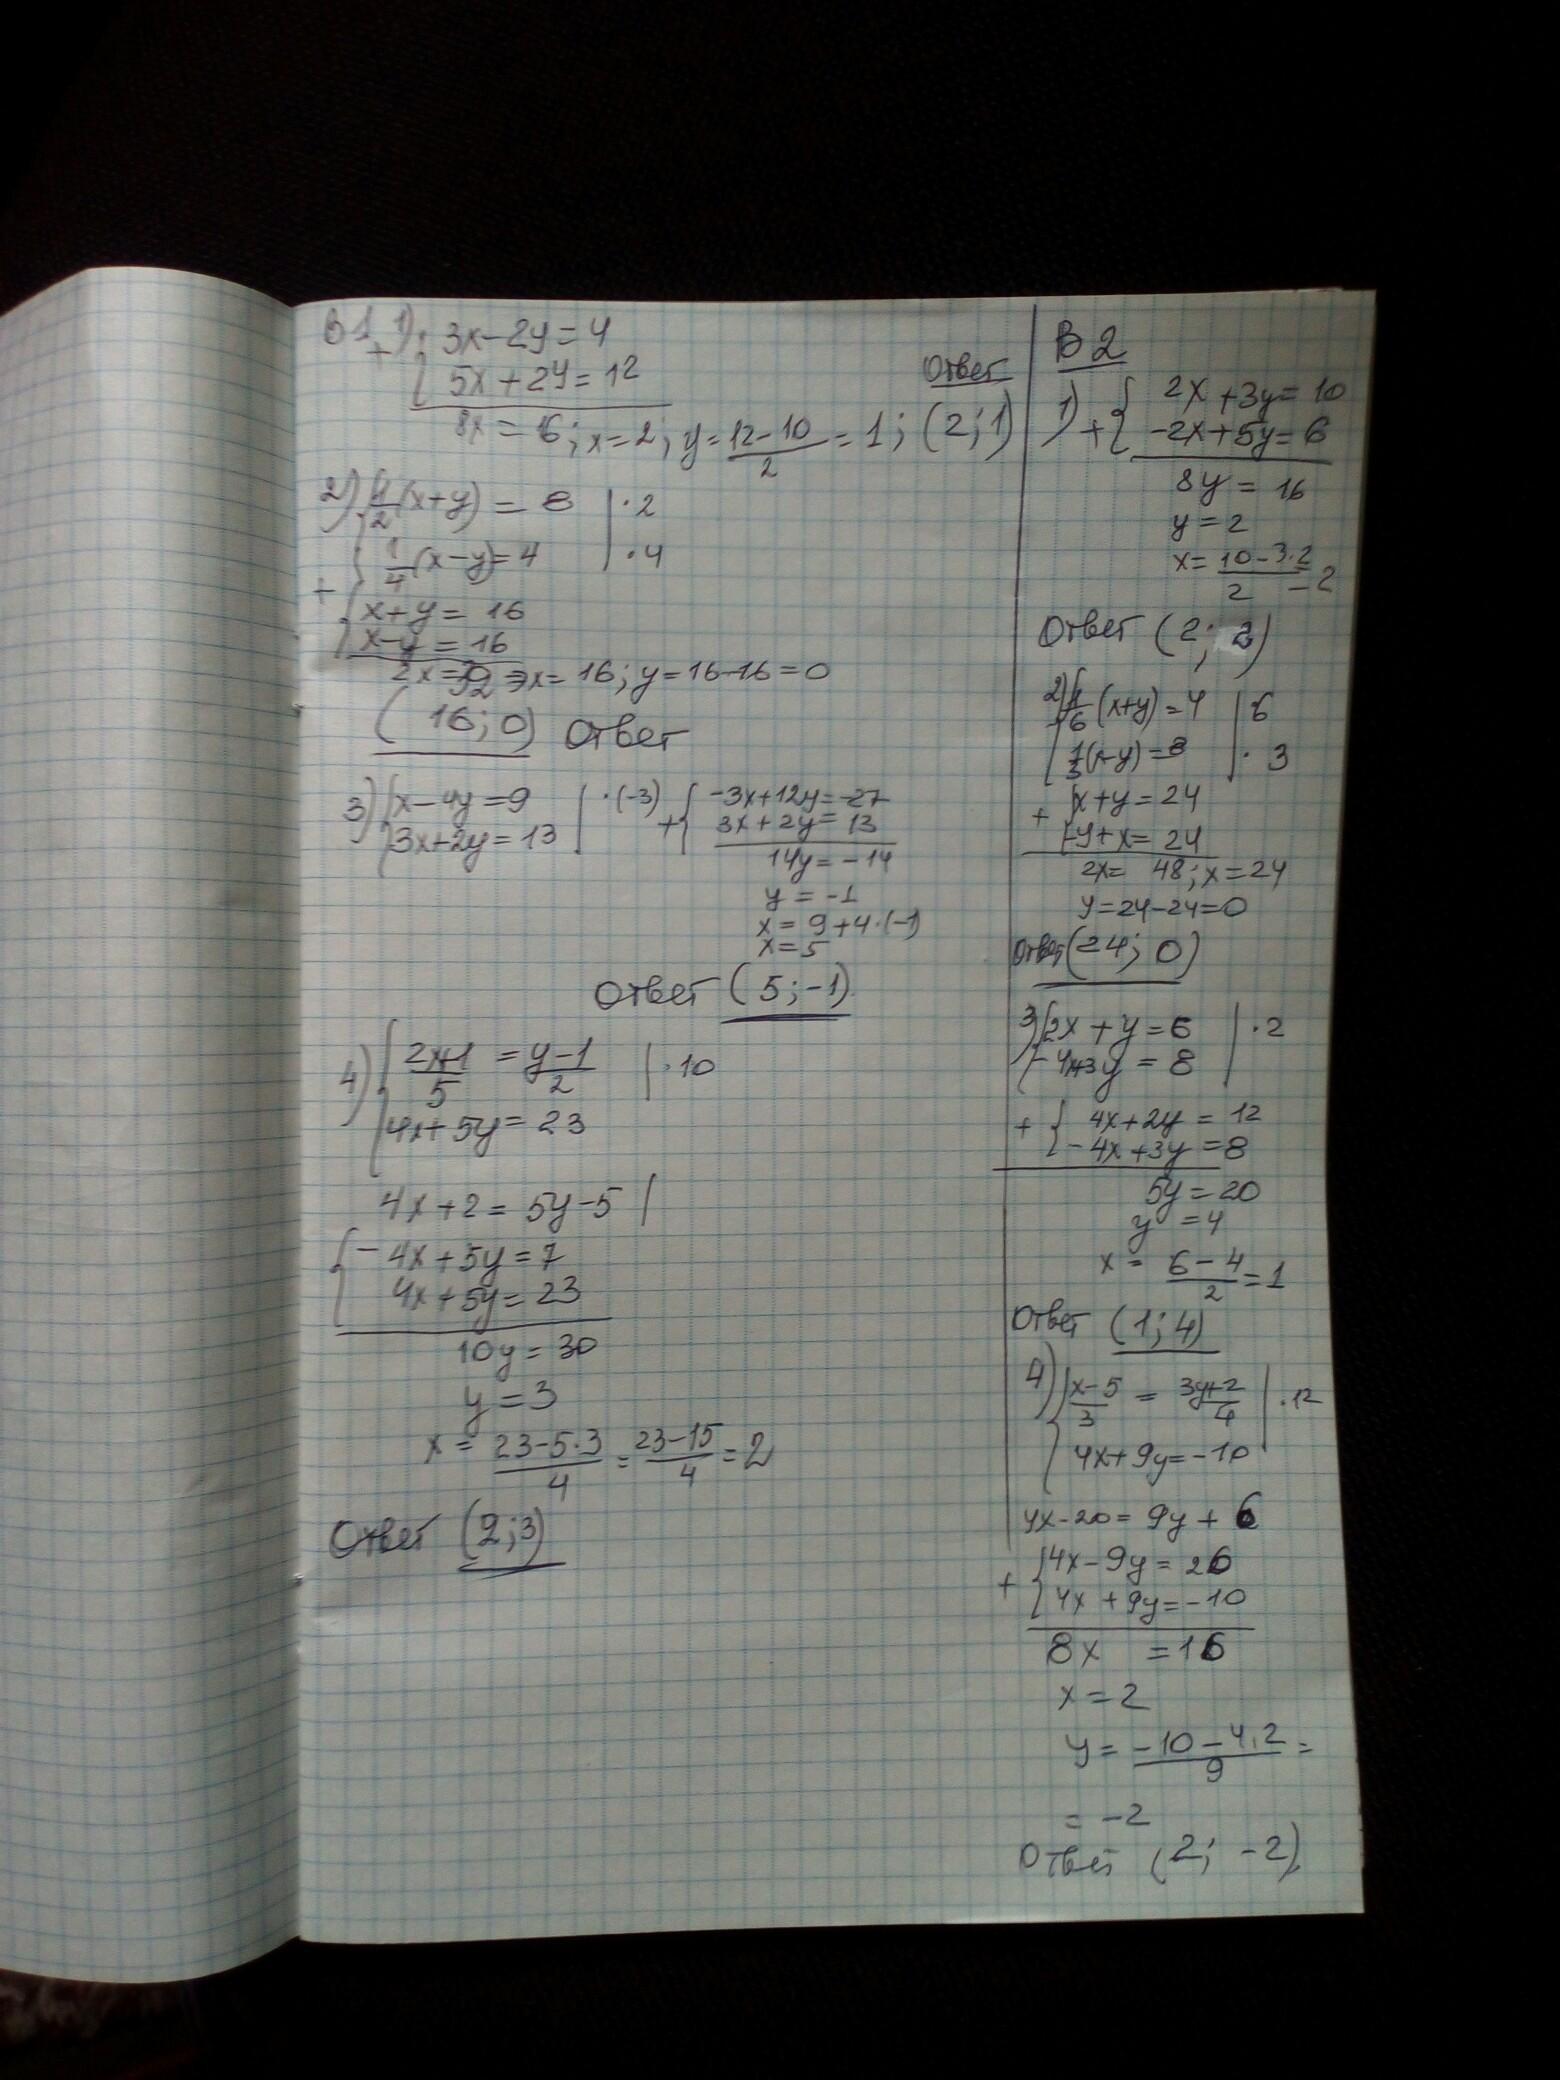 В1 1) 3x-2y=4
+ { 5x+2y=12
8x=16; x=2; y=(12-10)/2=1; (2;1)
Ответ
2) { 1/2(x+y)=8 | ·2
1/4(x-y)=4 | ·4
+ { x+y=16
x-y=16
2x=32 => x=16; y=16-16=0
(16;0) Ответ
3) { x-4y=9 | ·(-3)
3x+2y=13
+ { -3x+12y=-27
3x+2y=13
14y=-14
y=-1
x=9+4·(-1)
x=5
Ответ (5;-1).
4) { (2x+1)/5 = (y-1)/2 | ·10
4x+5y=23
4x+2=5y-5 |
{ -4x+5y=7
4x+5y=23
10y=30
y=3
x=(23-5·3)/4=(23-15)/4=2
Ответ (2;3)
В2
1) + { 2x+3y=10
-2x+5y=6
8y=16
y=2
x=(10-3·2)/2=2
Ответ (2;2)
2) { 1/6(x+y)=4 | 6
1/3(x-y)=8 | ·3
+ { x+y=24
-y+x=24
2x=48; x=24
y=24-24=0
Ответ (24;0)
3) { 2x+y=6 | ·2
-4x+3y=8
+ { 4x+2y=12
-4x+3y=8
5y=20
y=4
x=(6-4)/2=1
Ответ (1;4)
4) { (x-5)/3 = (3y+2)/4 | ·12
4x+9y=-10
4x-20=9y+6
+ { 4x-9y=26
4x+9y=-10
8x=16
x=2
y=(-10-4·2)/9=
=-2
Ответ (2;-2).